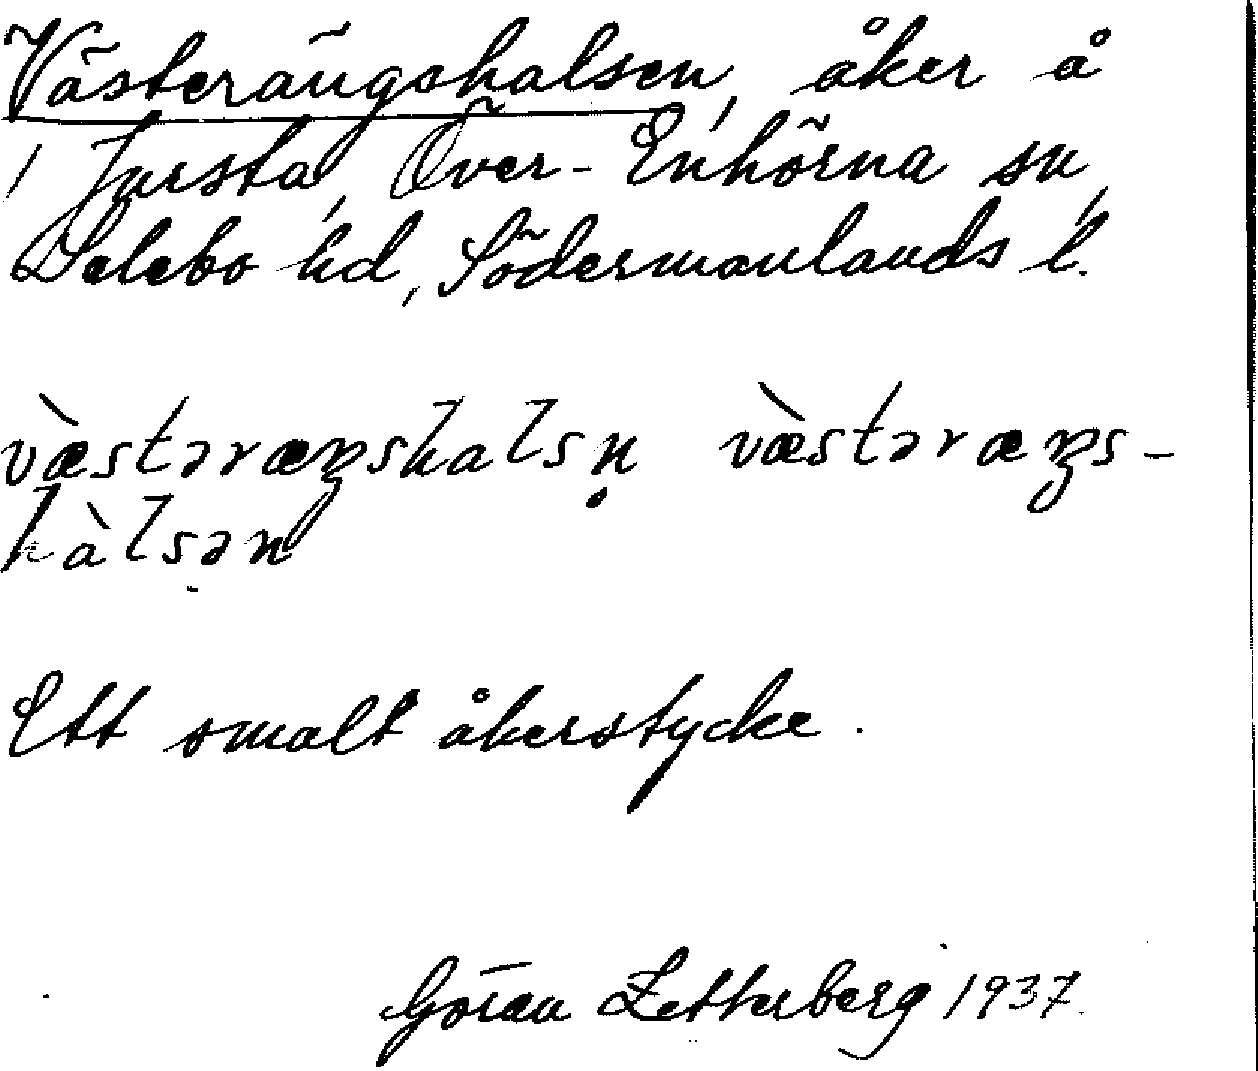 Västerängshalsen, åker å
Jursta, Över-Enhörna sn,
Selebo hd, Södermanlands l.
væ̀stəræŋshalsṇ væ̀stəræŋs-
hàlsən
Ett smalt åkerstycke.
Göran Zetterberg 1937.